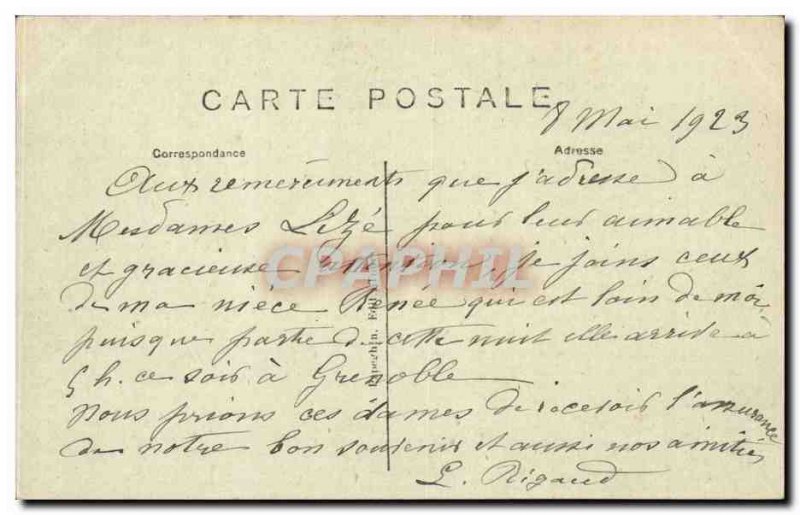 CARTE POSTALE
8 Mai 1923
Correspondance
Adresse
Aux remerciements que j'adresse à
Mesdames Lizé pour leur aimable
et gracieuse attention, je joins ceux
de ma nièce Renée qui est loin de moi
puisque partie de cette nuit elle arrive à
5 h. ce soir à Grenoble
Nous prions ces dames de recevoir l'assurance
de notre bon souvenir et aussi nos amitiés
Rigaud
CPAPHIL